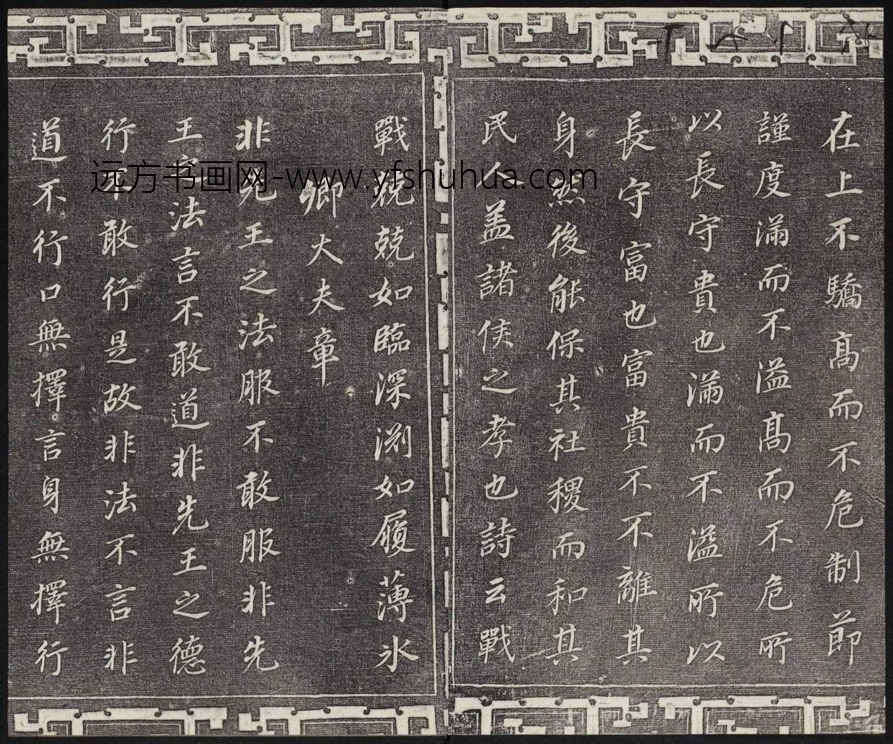 在上不驕髙而不危制節
謹度滿而不溢髙而不危所
以長守貴也滿而不溢所以
長守富也富貴不不離其
身然後能保其社稷而和其
民人盖諸侯之孝也詩云戰
戰兢兢如臨深渕如履薄氷
卿大夫章
非先王之法服不敢服非先
王之法言不敢道非先王之德
行不敢行是故非法不言非
道不行口無擇言身無擇行
远方书画网-www.yfshuhua.com